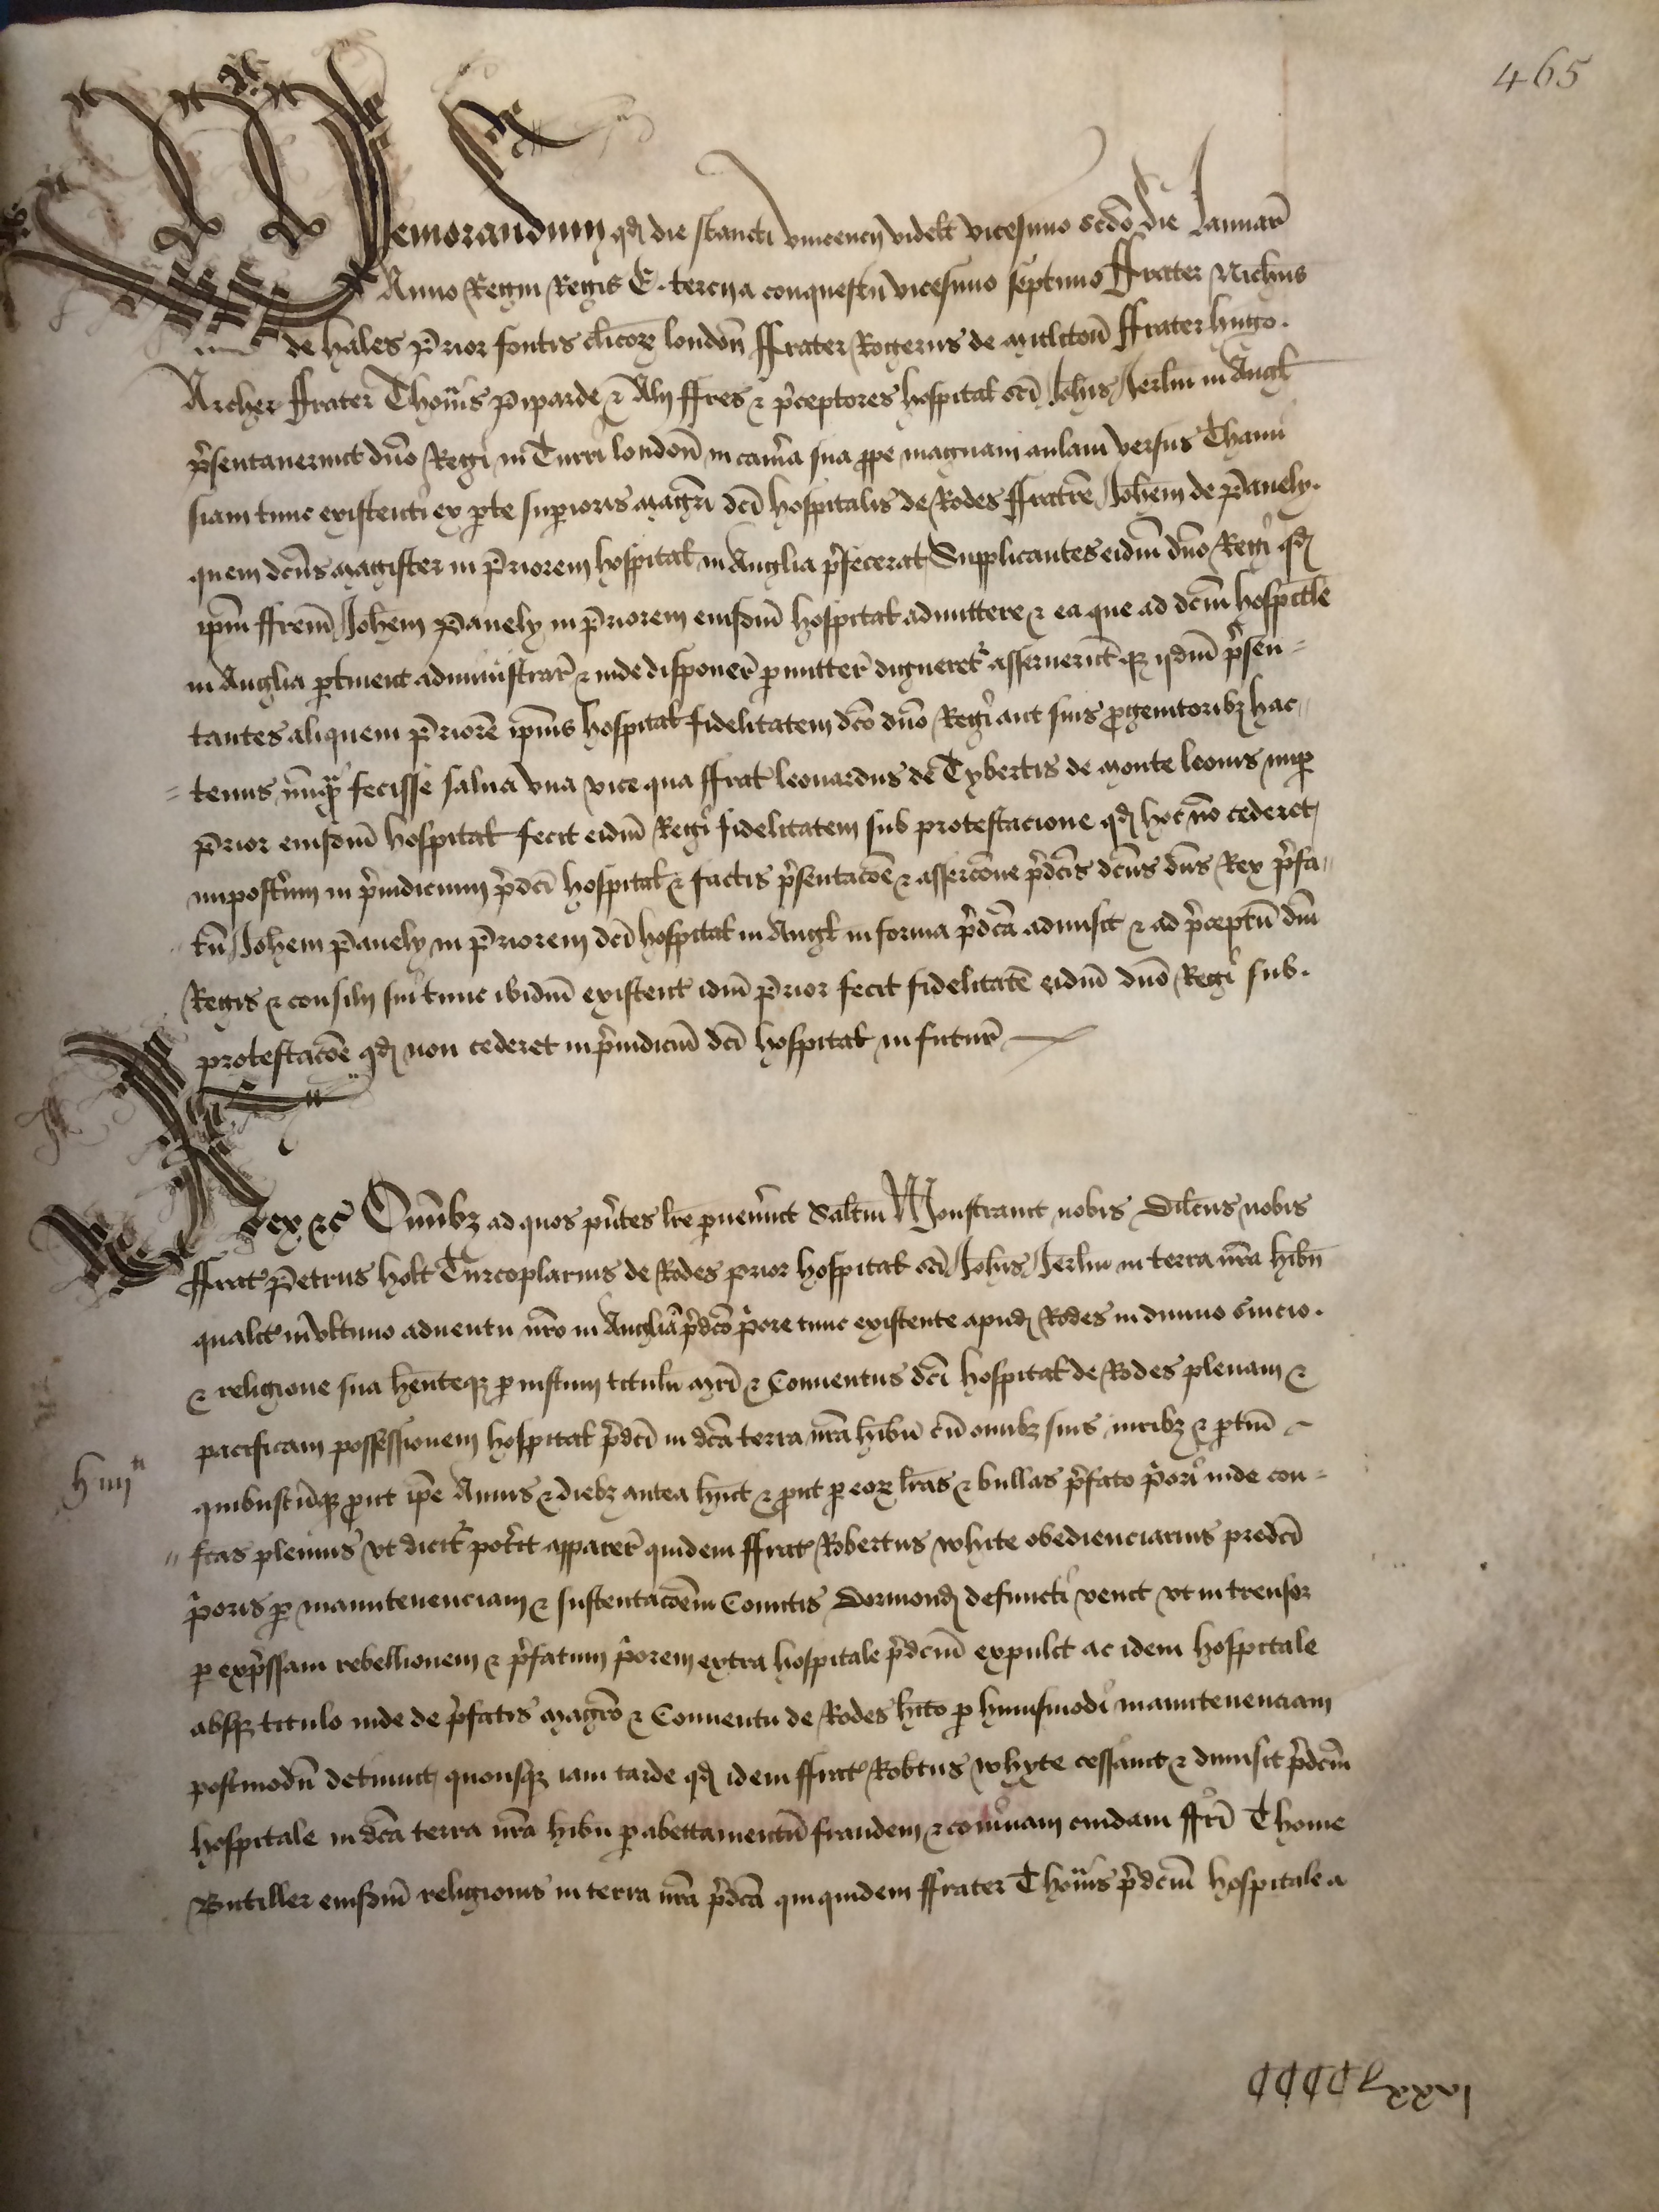 465
Memorandum qd die sancti vincencij videlt vicesimo scdo die Januar
Anno Regni Regis E. tercij a conquestu vicesimo septimo ffrater Nichus
de hales Prior fontis clicor london ffrater Rogerus de ffrater hugo
Archer ffrater Thomas Piparde & Alij ffres & pceptores hospital sci Johis Jerlm in Angl
psentauerunt dno Regi in Turri london in cama sua ppe magnam aulam versus Thami
siam tunc existenti ex pte superioris magri dci hospitalis de Rodes ffratre Johem de Pauely
quem dcus magister in Priorem hospital in Anglia pfecerat Supplicantes eidm dno Regi qd
ipm ffrem Johem Pauely in Priorem eiusdm hospital admittere & ea que ad dcm hospitle
in Anglia ptinent administrar & inde disponer pmitter digneret asseruerut q ijdm psen=
tantes aliquem Priore ipius hospital fidelitatem dco dno Regi aut suis pgenitoribz hac
=tenus nuq fecisse salua vna vice qua ffrat leonardus de Tybertis de monte leonis nup
Prior eiusdm hospital fecit eidm Regi fidelitatem sub protestacione qd hoc no cederet
imposterum in piudicium pdci hospital & factis psentacoe & assercone pdcis dcus dns Rex pfa
tu Johem Pauely in Priorem dci hospital in Angl in forma pdca admisit & ad pceptu dni
Regis & consilij sui tunc ibidm existent idm Prior fecit fidelitate eidm dno Regi sub
protestacoe qd non cederet in piudiciu dci hospital in futur
Rex &c Omibz ad quos pntes lre puenerint Saltm Monstrauit nobis Dilcus nobis
ffrat Petrus holt Turcoplarius de Rodes prior hospital sci Johis Jerlm in terra nra hibn
qualit in vltimo aduentu nro in Anglia pdco pore tunc existente apud Rodes in diuino suicio
& religione sua henteq p iustum titulu mri & Conuentus dci hospital de Rodes plenam &
pacificam possessionem hospital pdci in dca terra nra hibn cu omibz suis iuribz & ptin
quibuscuq put ipe Annis & diebz antea huit & put p eor lras & bullas pfato pori inde con=
fcas plenius vt dicit potit apparer quidem ffrat Robertus whyte obedienciarius predci
poris p manutenenciam & sustentacoem Comitis Dormond defuncti venit vt intrusor
p expssam rebellionem & pfatum porem extra hospitale pdcum expulit ac idem hospitale
absq titulo inde de pfatis magro & Conuentu de Rodes hito p huiusmodi manutenenciam
postmodu detinuit quousq iam tarde qd idem ffrat Robtus whyte cessauit & dimisit pdcm
hospitale in dca terra nra hibn p abettamentu fraudem & couinam cuidam ffri Thome
Butiller eiusdm religionis in terra nra pdca qui quidem ffrater Thomas pdcum hospitale a
CCCClxxvj